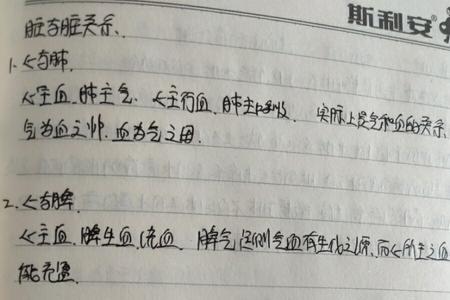 斯利安
脏与脏关系、
1. 心与肺
心主血、肺主气、心主行血、肺主呼吸、实际上是气和血的关系、
气为血之帅、血为气之
2. 心与脾
心主血、脾生血、统血、脾气足则气血有生化之源、而心所主之血
能充盈、